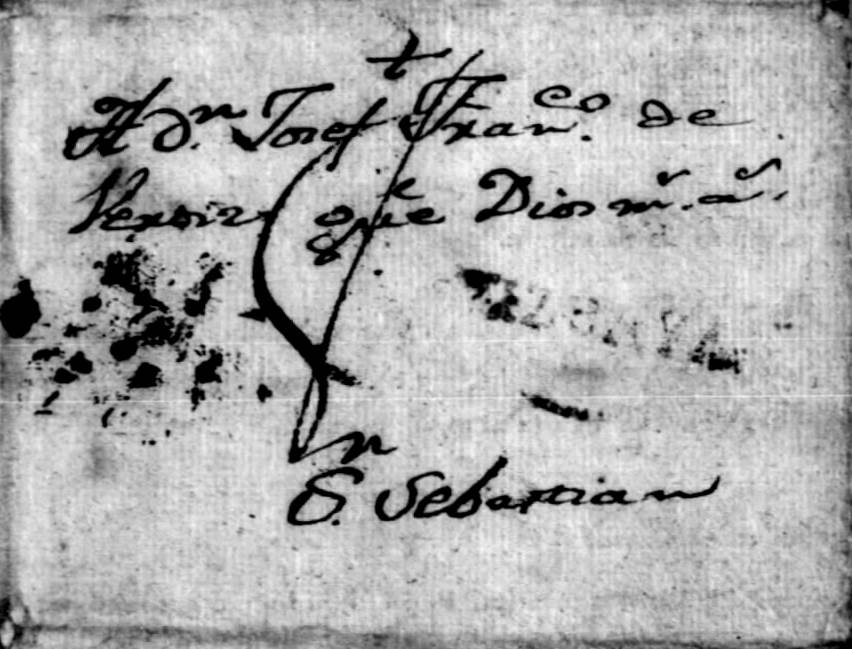 †
A Dn. Josef Franco. de
Veroiz que Dios ms. as.
Sn. Sebastian